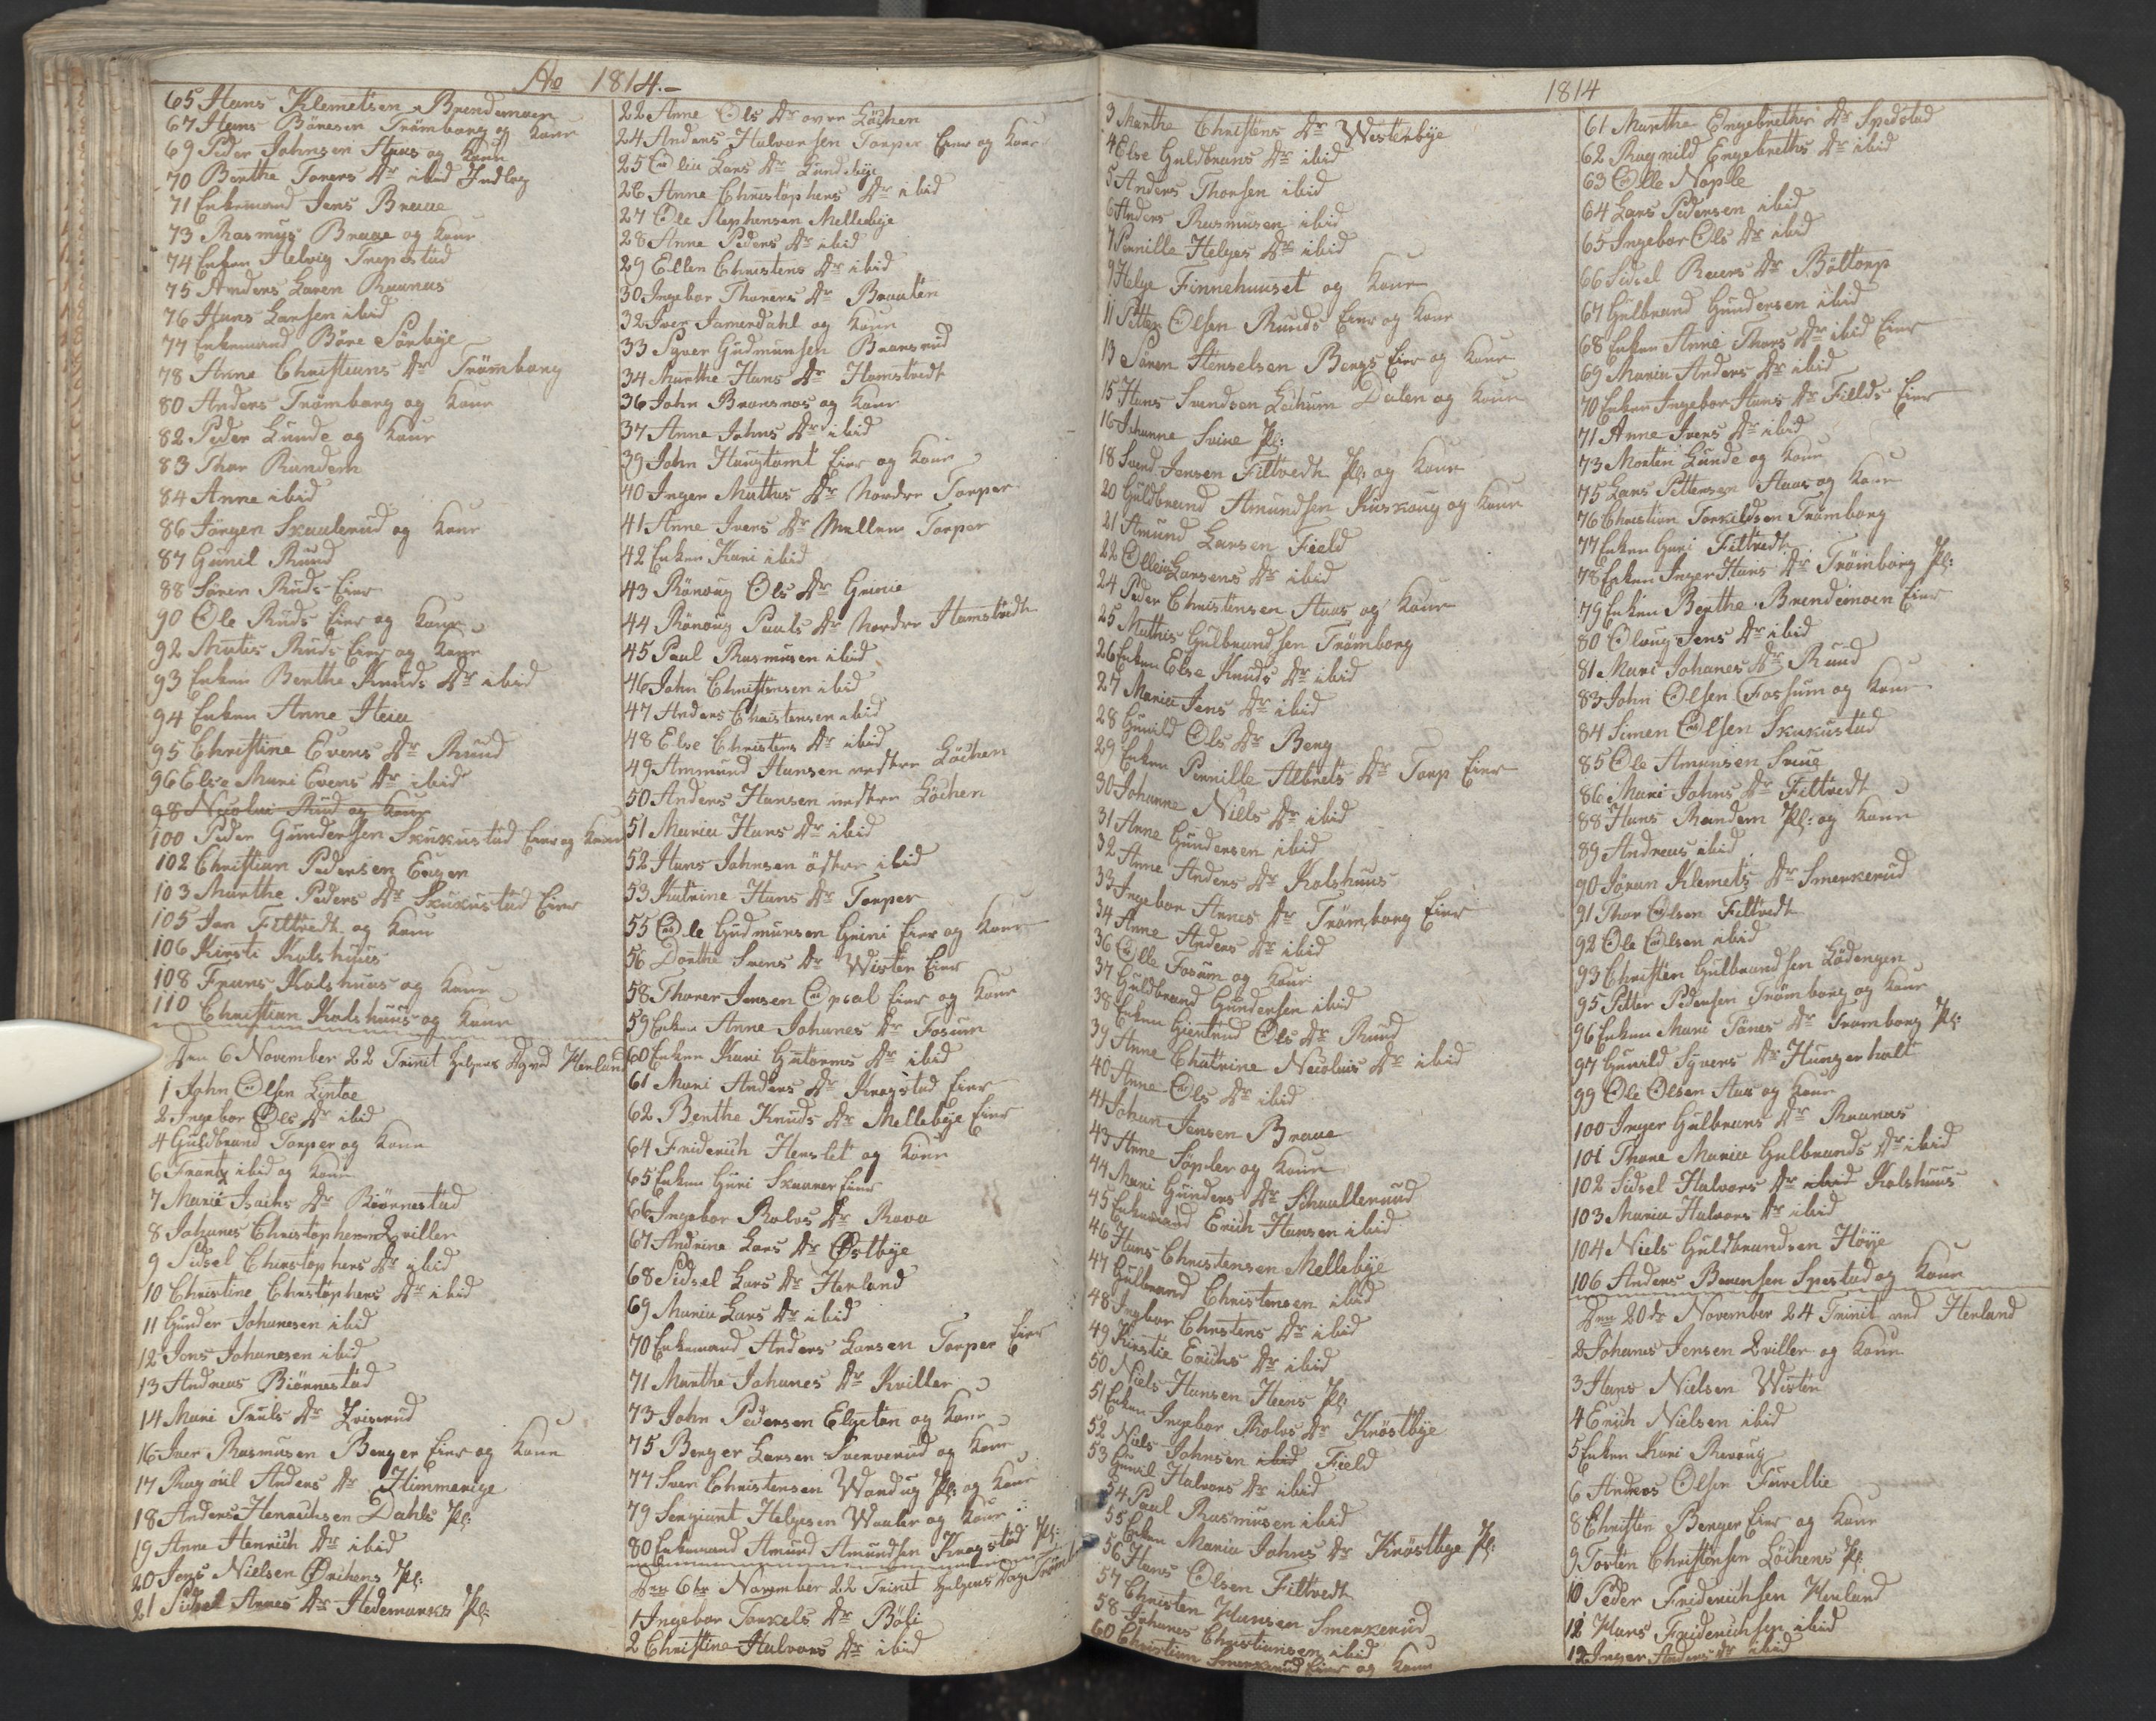 Ao 1814.-
65 Hans Klemetsen Brendemoen
67 Hans Börresen Trömborg og Kone
69 Peder Johnsen Haas og Kone
70 Berthe Torers Dr ibid Indlag
71 Enkemand Jens Braae
73 Rasmus Braae og Kone
74 Enken Helvig Trepstad
75 Anders Laren Raanas
76 Hans Larsen ibid
77 Enkemand Böre Sörbye
78 Anne Christians Dr Trömborg
80 Anders Trömborg og Kone
82 Peder Lunde og Kone
83 Thor Randem
84 Anne ibid
86 Jörgen Skaalerud og Kone
87 Gunil Ruud
88 Sören Ruds Eier
90 Ole Ruds Eier og Kone
92 Matis Ruds Eier og Kone
93 Enken Berthe Knuds Dr ibid
94 Enken Anne Heia
95 Christine Evens Dr Ruud
96 Else Mari Evens Dr ibid
98 Nicolai Rud og Kone
100 Peder Gundersen Skukustad Eier og Kone
102 Christian Pedersen Engen
103 Marthe Peders Dr Skukustad Eier
105 Jan Filtvedt og Kone
106 Kirsti Kolshuus
108 Frans Kolshuus og Kone
110 Christian Kolshuus og Kone
Den 6 November 22 Trinit Helgens Dag ved Herland
1 John Olsen Lintoe
2 Ingebor Ols Dr ibid
4 Guldbrand Torper og Kone
6 Frantz ibid og Kone
7 Marie Isachs Dr Biörnestad
8 Johanes Christophersen Qviller
9 Sidsel Christophers Dr ibid
10 Christine Christophers Dr ibid
11 Gunder Johanesen ibid
12 Jons Johanesen ibid
13 Andreas Biörnestad
14 Mari Truls Dr
16 Iver Rasmusen Berger Eier og Kone
17 Ragnil Anders Dr Himmerige
18 Anders Henrichsen Dahls Pl:
19 Anne Henrich Dr ibid
20 Jens Nielsen Örihens Pl:
21 Sidsel Arnes Dr Hedemarks Pl:
22 Anne Ols Dr øvre Löchen
24 Anders Halvorsen Torper Eier og Kone
25 Olia Lars Dr Lundebye
26 Anne Christophers Dr ibid
27 Ole Stephensen Mellebye
28 Anne Peders Dr ibid
29 Ellen Christens Dr ibid
30 Ingebor Thorers Dr Braaten
32 Iver Jamerdahl og Kone
33 Syver Gudmunsen Bransrud
34 Marthe Hans Dr Hamstvedt
36 John Bransnos og Kone
37 Anne Johns Dr ibid
39 John Haugtomt Eier og Kone
40 Inger Mathis Dr Nordre Torper
41 Anne Ivers Dr Mellem Torper
42 Enken Kari ibid
43 Rönaug Ols Dr Grinie
44 Rönaug Paals Dr Nordre Hamstvedt
45 Paul Rasmusen ibid
46 John Christensen ibid
47 Anders Christensen ibid
48 Else Christens Dr ibid
49 Ammund Hansen vestre Löchen
50 Anders Hansen vestre Löchen
51 Maria Hans Dr ibid
52 Hans Johnsen östre ibid
53 Katrine Hans Dr Torper
55 Ole Gudmunsen Grini Eier og Kone
56 Dorthe Svens Dr Wister Eier
58 Thorer Jensen Opsal Eier og Kone
59 Enken Anne Johanes Dr Fosum
60 Enken Kari Gutorms Dr ibid
61 Mari Anders Dr Kragstad Eier
62 Berthe Knuds Dr Mellebye Eier
64 Friderich Herslet og Kone
65 Enken Guri Skaarer Eier
66 Ingebor Rolvs Dr Rova
67 Andrine Lars Dr Østbye
68 Sidsel Lars Dr Herland
69 Maria Lars Dr ibid
70 Enkemand Anders Larsen Torper Eier
71 Marthe Johanes Dr Kviller
73 John Pedersen Elgeton og Kone
75 Berger Larsen Sververud og Kone
77 Iver Christensen Wandug Pl: og Kone
79 Sergiant Helgesen Waaler og Kone
80 Enkemand Amund Amundsen Kragstad Pl:
Den 6te November 22 Trinit Helgens Dag
1 Ingebor Torkels Dr Böli
2 Christine Halvors Dr ibid
1814
3 Marthe Christens Dr Westerbye
4 Else Guldbrans Dr ibid
5 Anders Thorsen ibid
6 Anders Rasmusen ibid
7 Pernille Helges Dr ibid
9 Helge Finnehuuset og Kone
11 Petter Olsen Ruuds Eier og Kone
13 Sören Stenselsen Bergs Eier og Kone
15 Hans Svendsen Lechum Dalen og Kone
16 Johanne Svine Pl:
18 Svend Jensen Filtvedt Pl: og Kone
20 Guldbrand Amundsen Kuskaug og Kone
21 Amund Larsen Field
22 Ollia Larsens Dr ibid
24 Peder Christensen Aaas og Kone
25 Mathis Gulbrandsen Trömborg
26 Enken Else Knuds Dr ibid
27 Maria Jens Dr ibid
28 Gunild Ols Dr Berg
29 Enken Pernille Albrets Dr Torp Eier
30 Johanne Niels Dr ibid
31 Anne Gundersen ibid
32 Anne Anders Dr Kolshuus
33 Ingebor Arnes Dr Trömborg Eier
34 Anne Anders Dr ibid
36 Olle Fosum og Kone
37 Guldbrand Gundersen ibid
38 Enken Giertrud Ols Dr Ruud
39 Anne Chatrine Nicolais Dr ibid
40 Anne Ols Dr ibid
41 Johan Jensen Braae
43 Arne Söpler og Kone
44 Mari Gunders Dr Schaallerud
45 Enkemand Erich Hansen ibid
46 Hans Christensen Mellebye
47 Gulbrand Christensen ibid
48 Ingebor Christens Dr ibid
49 Kirstie Erichs Dr ibid
50 Niels Hansen Heens Pl:
51 Enken Ingebor Rolvs Dr Knöstbye
52 Niels Johnsen ibid Field
53 Gunil Halvors Dr ibid
54 Paul Rasmusen ibid
55 Enken Maria Johns Dr Knöstbye Pl:
56 Hans Olsen Filtvedt
57 Christen Hansen Smerkerud
58 Johanes Christiansen ibid
60 Christian Smerkerud Eier og Kone
61 Marthe Engebrethes Dr Spestad
62 Ragnild Engebreths Dr ibid
63 Olle Nople
64 Lars Pedersen ibid
65 Ingebor Ols Dr ibid
66 Sidsel Reiers Dr Böttorp
67 Gulbrand Gundersen ibid
68 Enken Anne Thors Dr ibid Eier
69 Maria Anders Dr ibid
70 Enken Ingebor Hans Dr Fields Eier
71 Anne Ivers Dr ibid
73 Morten Lunde og Kone
75 Lars Pettersen Aaas og Kone
76 Christian Torkildsen Trömborg
77 Enken Guri Filtvedt
78 Enken Inger Hans Dr Trömborg Pl:
79 Enken Berthe Brendemoen Eier
80 Olaug Jens Dr ibid
81 Mari Johanes Dr Ruud
83 John Olsen Fossum og Kone
84 Simen Olsen Skukustad
85 Ole Amunsen Svine
86 Mari Johns Dr Filtvedt
88 Hans Randem Pl: og Kone
89 Andreas ibid
90 Jöran Klemets Dr Smerkerud
91 Thor Olsen Filtvedt
92 Ole Olsen ibid
93 Christen Gulbrandsen Lödengen
95 Petter Pedersen Trömborg og Kone
96 Enken Mari Tönes Dr Tromborg Pl:
97 Gunild Syvers Dr Hungerholt
99 Ole Olsen Aas og Kone
100 Inger Gulbrans Dr Raanas
101 Thore Maria Gulbrands Dr ibid
102 Sidsel Halvors Dr ibid Kolshuus
103 Maria Halvors Dr ibid
104 Niels Guldbrandsen Höie
106 Anders Berensen Spestad og Kone
Den 20de November 24 Trinit ved Herland
2 Johanes Jensen Qviller og Kone
3 Hans Nielsen Wister
4 Erich Nielsen ibid
5 Enken Kari Revaug
6 Andreas Olsen Furellie
8 Christen Berger Eier og Kone
9 Torsten Christensen Löchens Pl:
10 Peder Friderichsen Herland
12 Hans Friderichsen ibid
12 Inger Anders Dr ibid